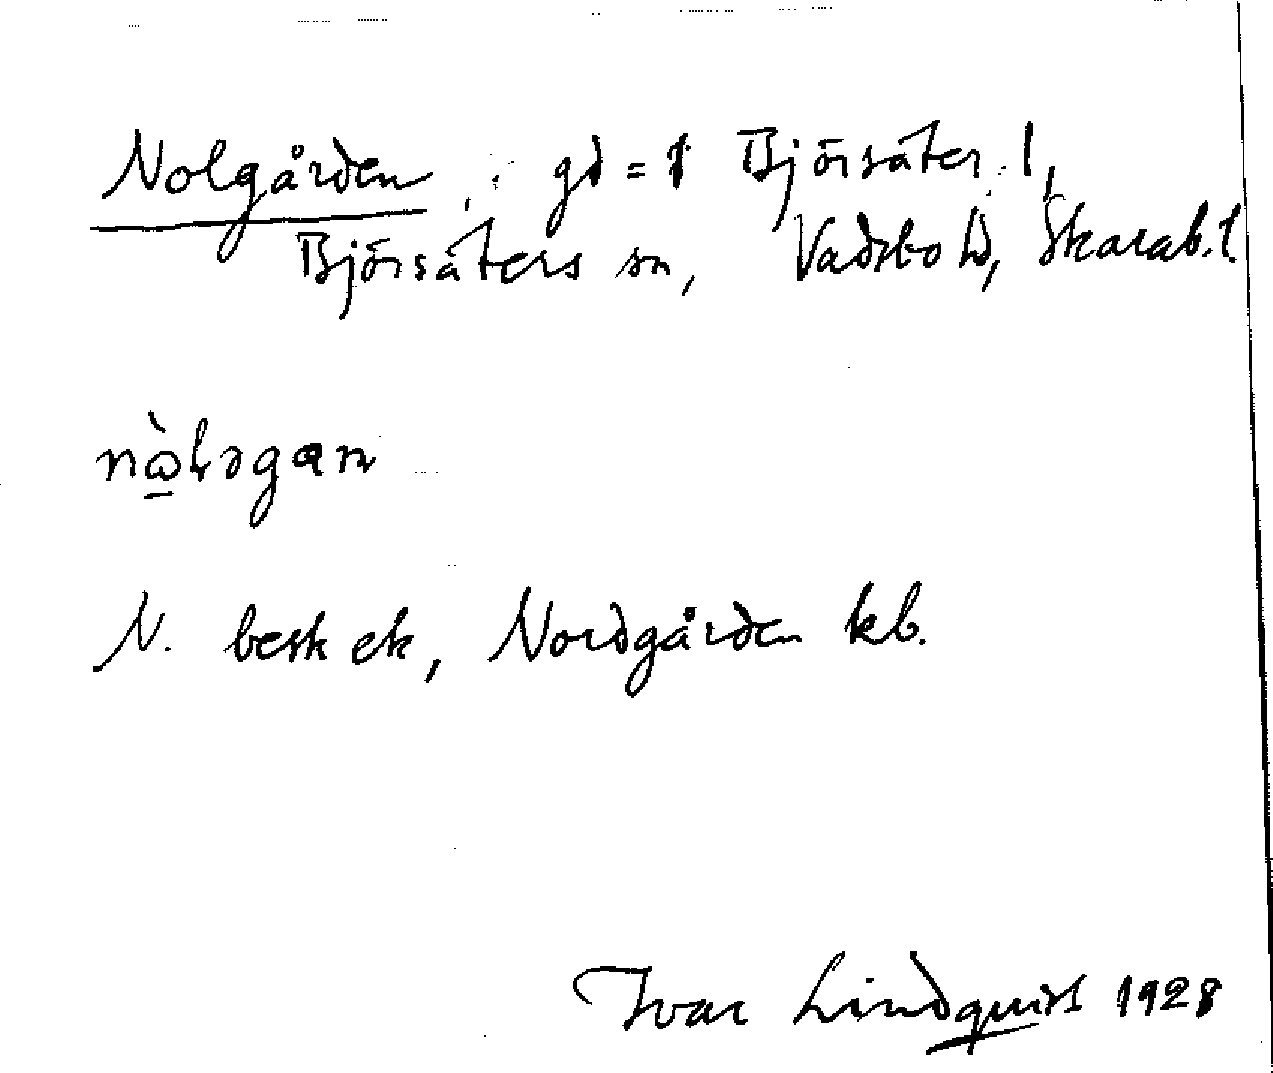 Nolgården, gd = 1 Björsäter 1,
Björsäters sn, Vadsbo hd, Skarab. l.
nὼləgan
N. besk ek, Nordgården kb.
Ivar Lindquist 1928